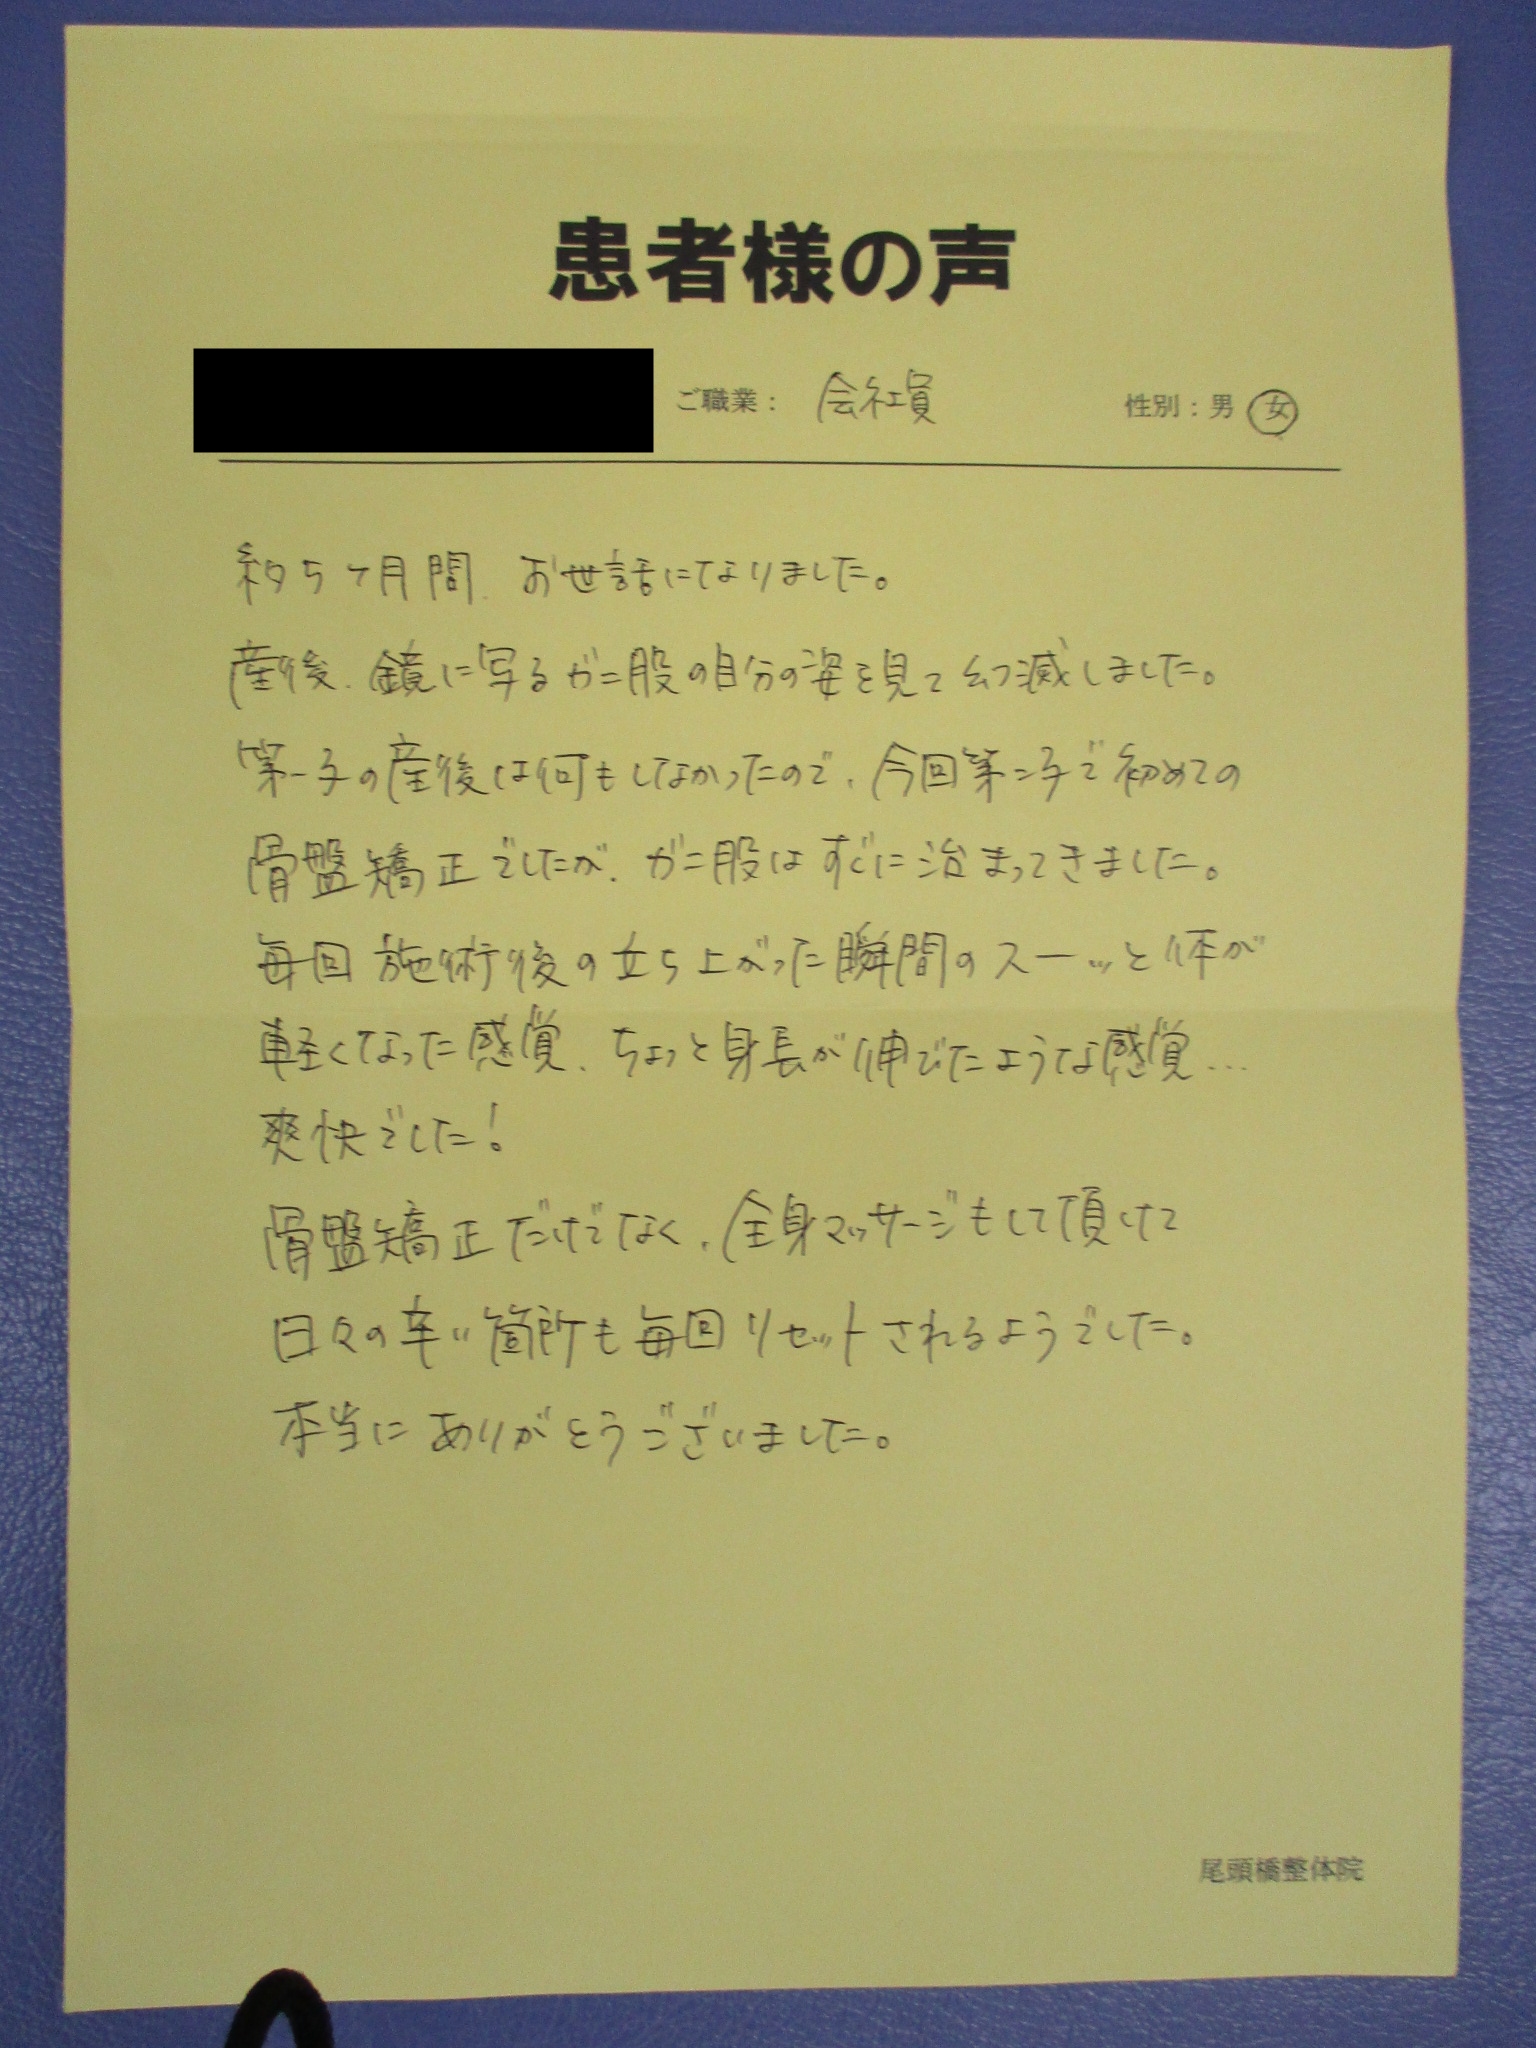 患者様の声
ご職業： 会社員 性別：男 女
約5ヶ月間、お世話になりました。
産後、鏡に写るガニ股の自分の姿を見て幻滅しました。
第一子の産後は何もしなかったので、今回第二子で初めての
骨盤矯正でしたが、ガニ股はすぐに治まってきました。
毎回施術後の立ち上がった瞬間のスーッと体が
軽くなった感覚、ちょっと身長が伸びたような感覚…
爽快でした！
骨盤矯正だけでなく、全身マッサージもして頂けて
日々の辛い箇所も毎回リセットされるようでした。
本当にありがとうございました。
尾頭橋整体院